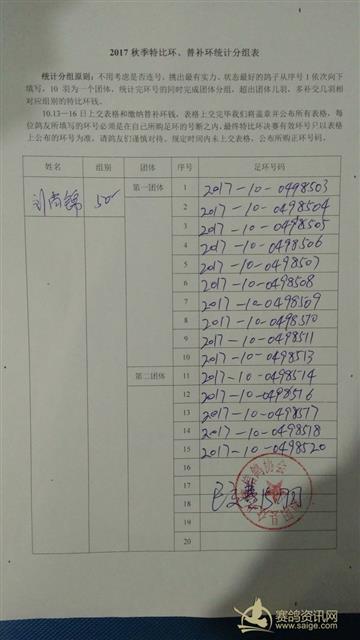 2017 秋季特比环、普补环统计分组表
统计分组原则：不用考虑是否连号，挑出最有实力、状态最好的鸽子从序号 1 依次向下
填写，10 羽为一个团体，统计完环号的同时完成团体分组，超出团体几羽，多补交几羽相
对应组别的特比环钱。
10.13－16 日上交表格和缴纳普补环钱，表格上交完毕我们将盖章并公布所有表格，每
位鸽友所填写的环号必须是在自己所购足环的号断之内，最终特比环决赛有效环号只以表格
上公布的环号为准。请鸽友们谨慎对待。规定时间内未上交表格，公布所购正环号码。
姓名 组别 团体 序号 足环号码
刘尚锦 50 第一团体 1 2017-10-0498503
2 2017-10-0498504
3 2017-10-0498505
4 2017-10-0498506
5 2017-10-0498507
6 2017-10-0498508
7 2017-10-0498509
8 2017-10-0498510
9 2017-10-0498511
10 2017-10-0498513
第二团体 11 2017-10-0498514
12 2017-10-0498516
13 2017-10-0498517
14 2017-10-0498518
15 2017-10-0498520
16
17
18
19
20
赛鸽资讯网
www.saige.com